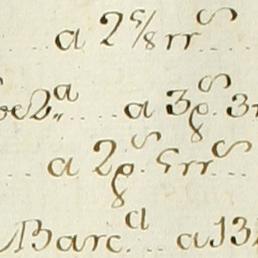 a 2 5/8 rrs
2.ª a 3 ps. 3
a 2 ps. 5 rrs
Barc.a a 13